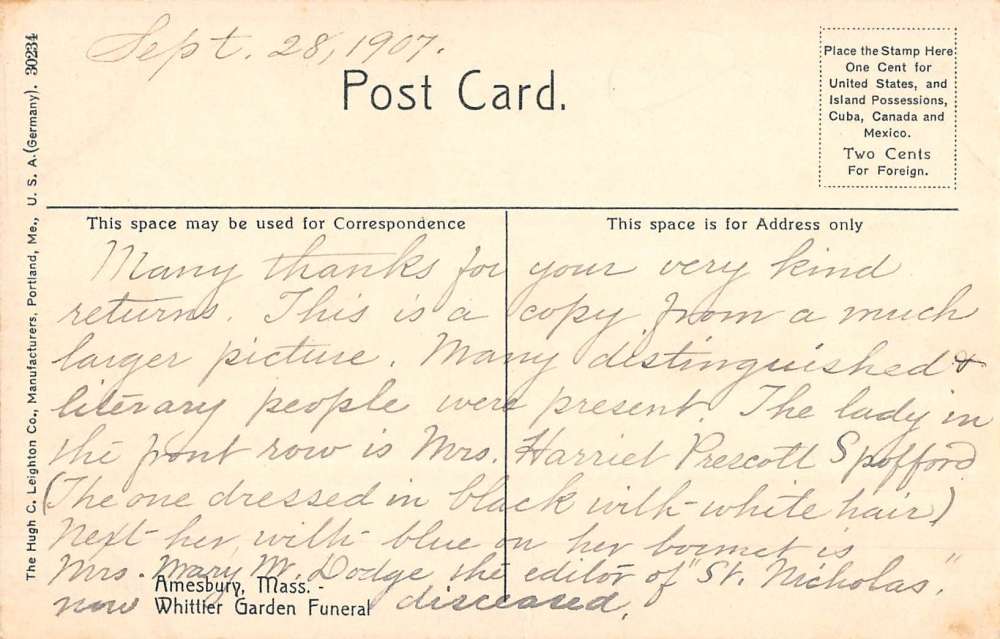 Sept. 28, 1907.
Post Card.
Place the Stamp Here
One Cent for
United States, and
Island Possessions,
Cuba, Canada and
Mexico.
Two Cents
For Foreign.
The Hugh C. Leighton Co., Manufacturers, Portland, Me., U. S. A. (Germany). 30234
This space may be used for Correspondence
This space is for Address only
Many thanks for your very kind
returns. This is a copy from a much
larger picture. Many distinguished &
literary people were present. The lady in
the front row is Mrs. Harriet Prescott Spofford
(The one dressed in black with white hair)
Next her with blue on her bonnet is
Mrs. Mary M. Dodge the editor of "St. Nicholas,"
now disceased.
Amesbury, Mass. -
Whittier Garden Funeral